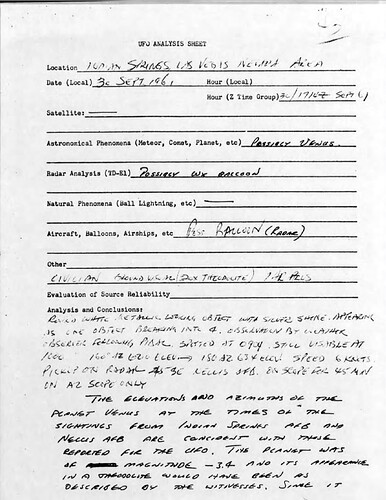 UFO ANALYSIS SHEET
Location INDIAN SPRINGS LAS VEGAS NEVADA AREA
Date (Local) 30 SEPT 1961 Hour (Local)
Hour (Z Time Group) SEPT
Satellite:
Astronomical Phenomena (Meteor, Comet, Planet, etc) POSSIBLY VENUS.
Radar Analysis (TD-E1) POSSIBLY WX BALLOON
Natural Phenomena (Ball Lightning, etc)
Aircraft, Balloons, Airships, etc BALLOON (RADAR)
Other
CIVILIAN GROUND VISUAL
Evaluation of Source Reliability
Analysis and Conclusions:
ROUND WHITE METALLIC LOOKING OBJECT WITH SILVER SHINE. APPEARING
AS ONE OBJECT BREAKING INTO 4. OBSERVATION BY WEATHER
OBSERVER FOLLOWING PIBAL. SPOTTED AT STILL VISIBLE AT
SPEED 6 KNOTS.
PICKUP ON RADAR NELLIS AFB. ON SCOPE FOR 45 MIN
ON AZ SCOPE ONLY
THE ELEVATIONS AND AZIMUTHS OF THE
PLANET VENUS AT THE TIMES OF THE
SIGHTINGS FROM INDIAN SPRINGS AFB AND
NELLIS AFB ARE COINCIDENT WITH THOSE
REPORTED FOR THE UFO. THE PLANET WAS
OF MAGNITUDE -3.4 AND ITS APPEARANCE
IN A THEODOLITE WOULD HAVE BEEN AS
DESCRIBED BY THE WITNESSES. SINCE IT